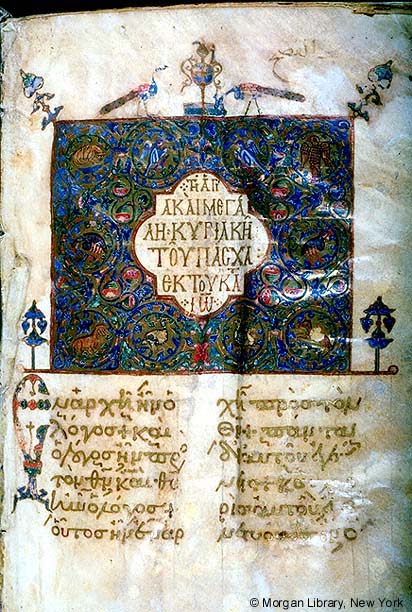 ΤΗ ΑΓΙ
Α ΚΑΙ ΜΕΓΑ
ΛΗ · ΚΥΡΙΑΚΗ
ΤΟΥ ΠΑΣΧΑ
ΕΚ ΤΟΥ ΚΑ
ΙΩ
Ἐν ἀρχῆ ἦν ὁ
λόγος + καὶ
ὁ λόγος ἦν προ
τὸν θν καὶ θς
ἦν ὁ λόγος +
οὗτος ἦν ἐν ἀρ
χῆ πρὸς τὸν
θν + πάντα
δι αὐτοῦ ἐγέ
νετο + καὶ
ρὶς αὐτοῦ ἐ
© Morgan Library, New York